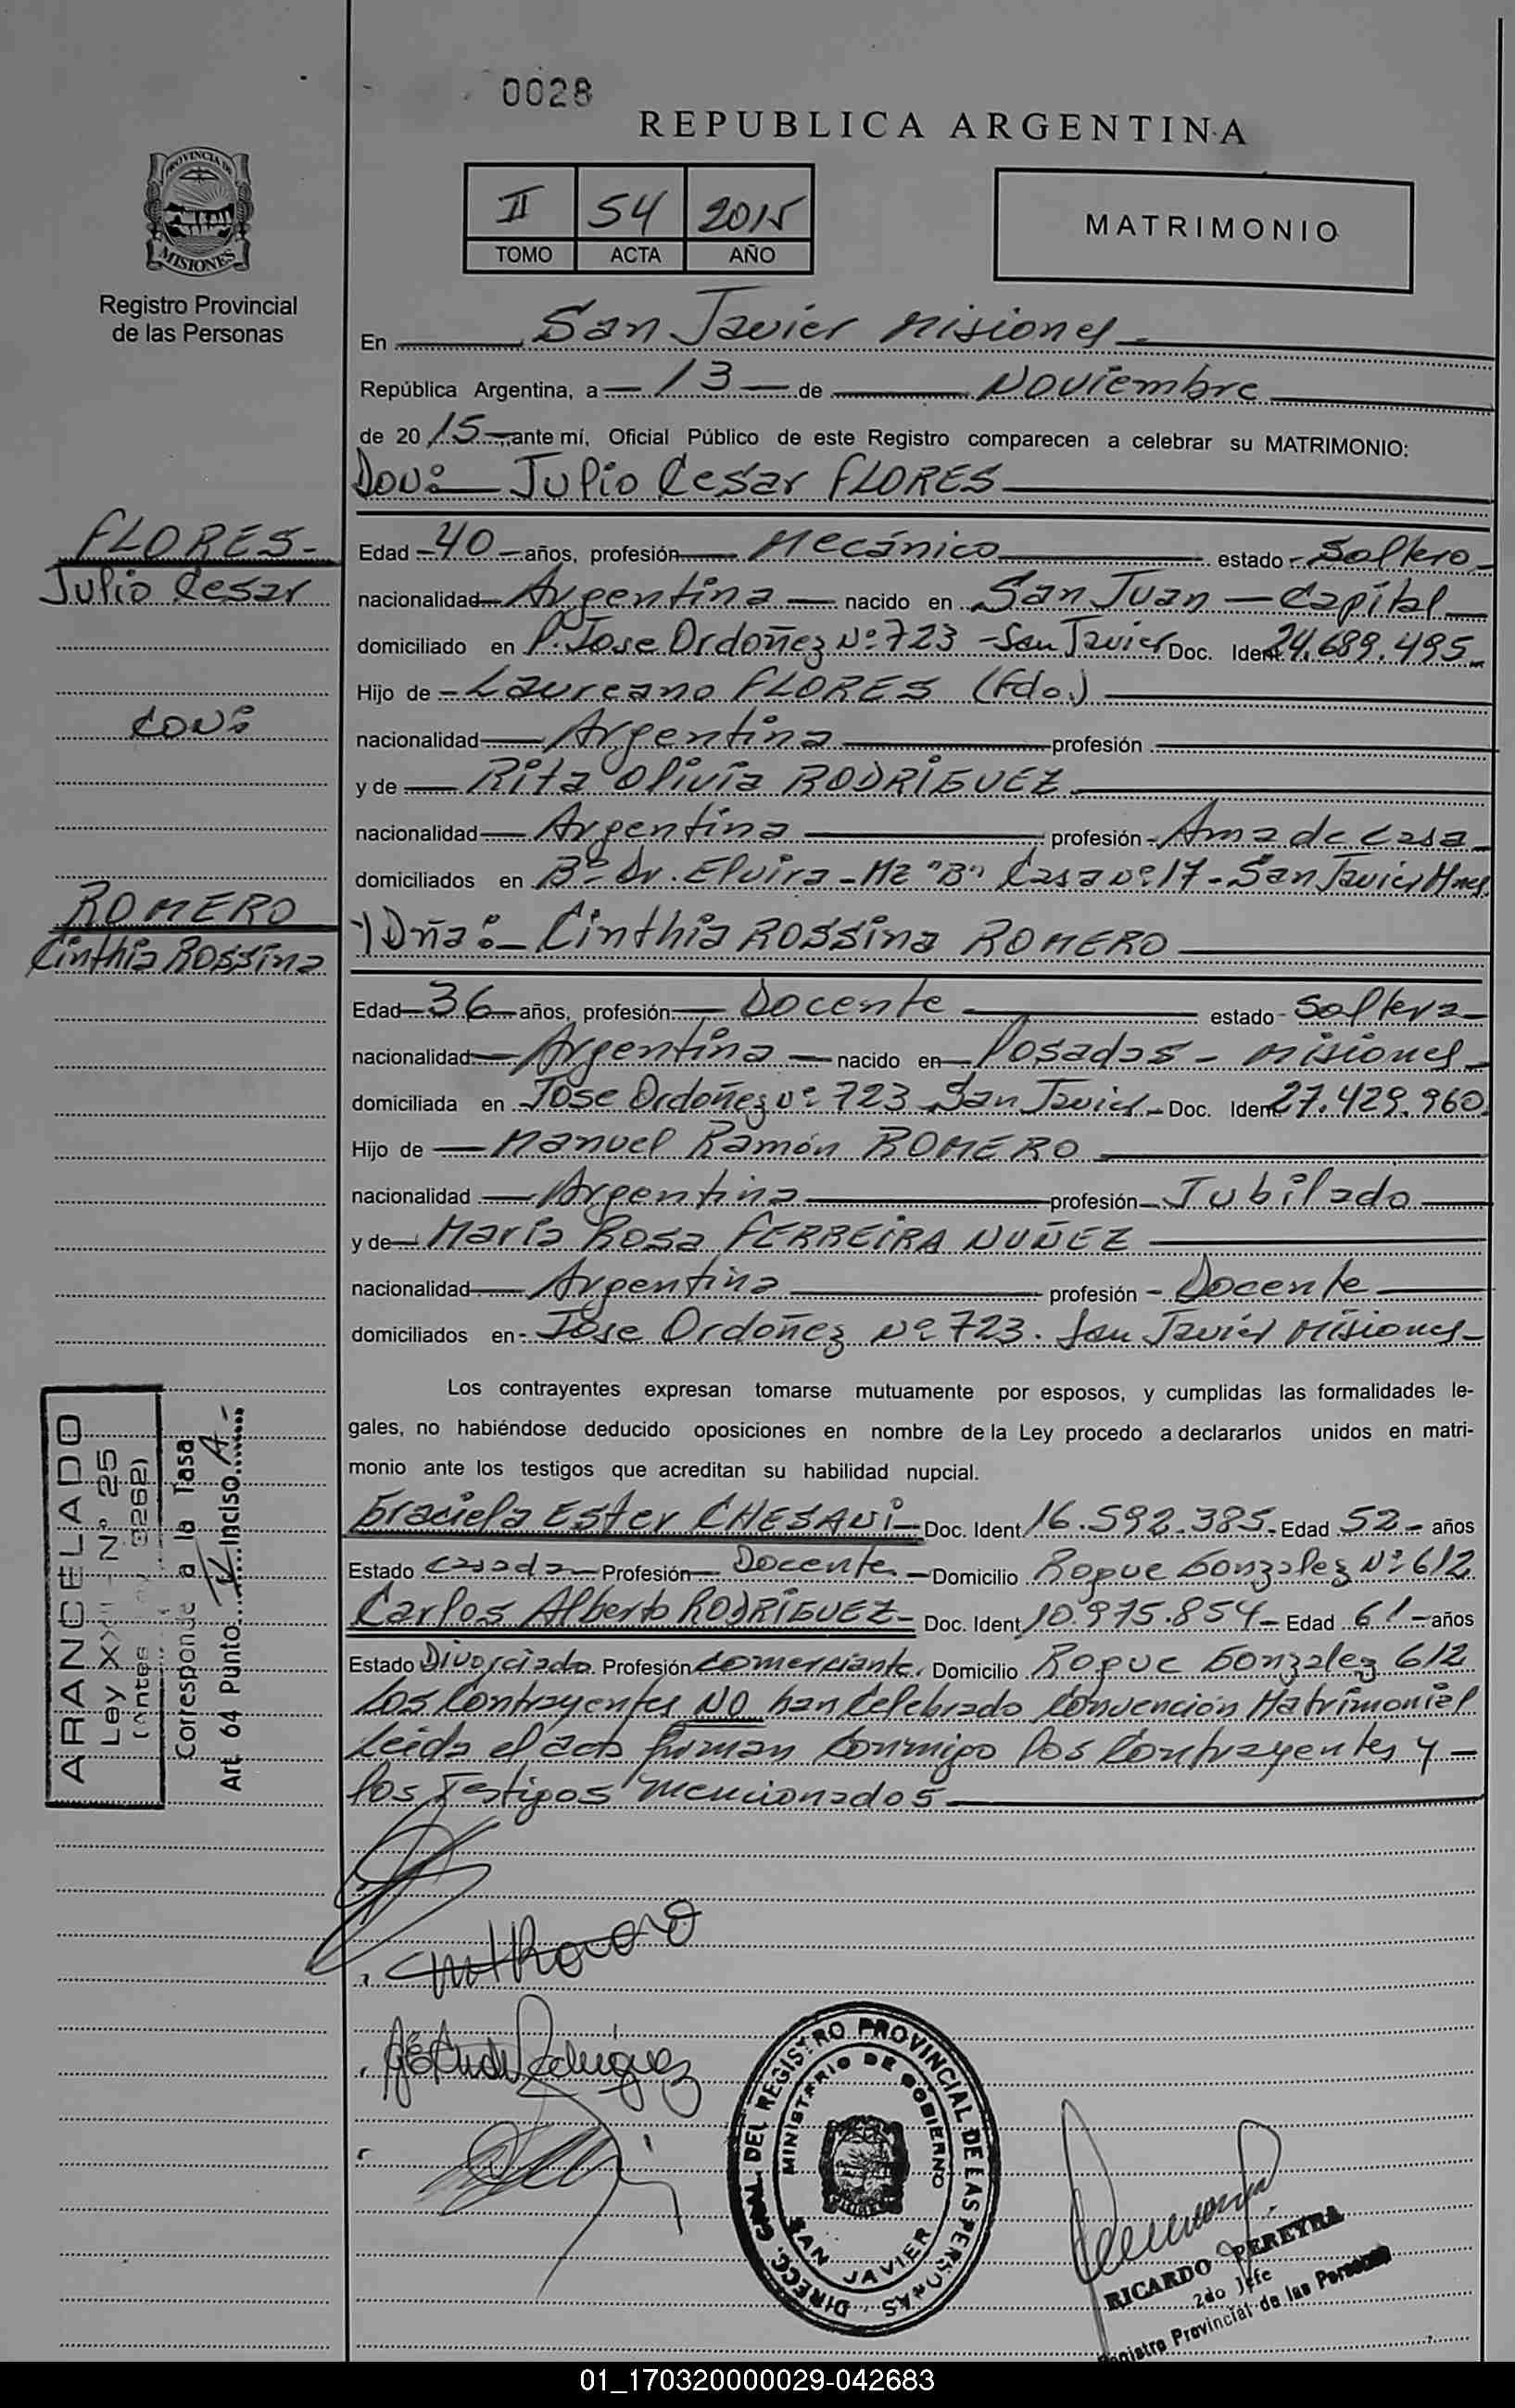 0028
REPUBLICA ARGENTINA
PROVINCIA DE
MISIONES
Registro Provincial
de las Personas
II 54 2015
TOMO ACTA AÑO
MATRIMONIO
En San Javier Misiones
República Argentina, a 13 de Noviembre
de 2015 ante mí, Oficial Público de este Registro comparecen a celebrar su MATRIMONIO:
Don: Julio Cesar FLORES
FLORES
Julio Cesar
con:
ROMERO
Cinthia Rossina
Edad 40 años, profesión Mecánico estado Soltero
nacionalidad Argentina nacido en San Juan - Capital
domiciliado en P. Jose Ordoñez Nº 723 - San Javier Doc. Ident. 24.689.495
Hijo de Laureano FLORES (Fdo.)
nacionalidad Argentina profesión
y de Rita Olivia RODRIGUEZ
nacionalidad Argentina profesión Ama de casa
domiciliados en Bº Dr. Elvira - Mz "B" Casa nº 17 - San Javier Mnes.
y Dña: Cinthia Rossina ROMERO
Edad 36 años, profesión Docente estado Soltera
nacionalidad Argentina nacido en Posadas - Misiones
domiciliada en Jose Ordoñez nº 723 San Javier Doc. Ident. 27.429.960
Hijo de Manuel Ramón ROMERO
nacionalidad Argentina profesión Jubilado
y de Maria Rosa FERREIRA NUÑEZ
nacionalidad Argentina profesión Docente
domiciliados en Jose Ordoñez Nº 723. San Javier Misiones
Los contrayentes expresan tomarse mutuamente por esposos, y cumplidas las formalidades le-
gales, no habiéndose deducido oposiciones en nombre de la Ley procedo a declararlos unidos en matri-
monio ante los testigos que acreditan su habilidad nupcial.
Graciela Ester CHESANI Doc. Ident 16.592.385 Edad 52 años
Estado casada Profesión Docente Domicilio Roque Gonzalez Nº 612
Carlos Alberto RODRIGUEZ Doc. Ident 10.975.854 Edad 61 años
Estado Divorciado Profesión comerciante. Domicilio Roque Gonzalez 612
Los Contrayentes NO han Celebrado Convención Matrimonial
Leida el acta firman Conmigo los Contrayentes y
los Testigos mencionados
ARANCELADO
Ley XXII - Nº 25
(Antes 3262)
Corresponde a la Tasa
Art. 64 Punto IV Inciso A -
DIRECC. GRAL. DEL REGISTRO PROVINCIAL DE LAS PERSONAS
MINISTERIO DE GOBIERNO
SAN JAVIER
RICARDO PEREYRA
2do Jefe
Registro Provincial de las Personas
01_170320000029-042683